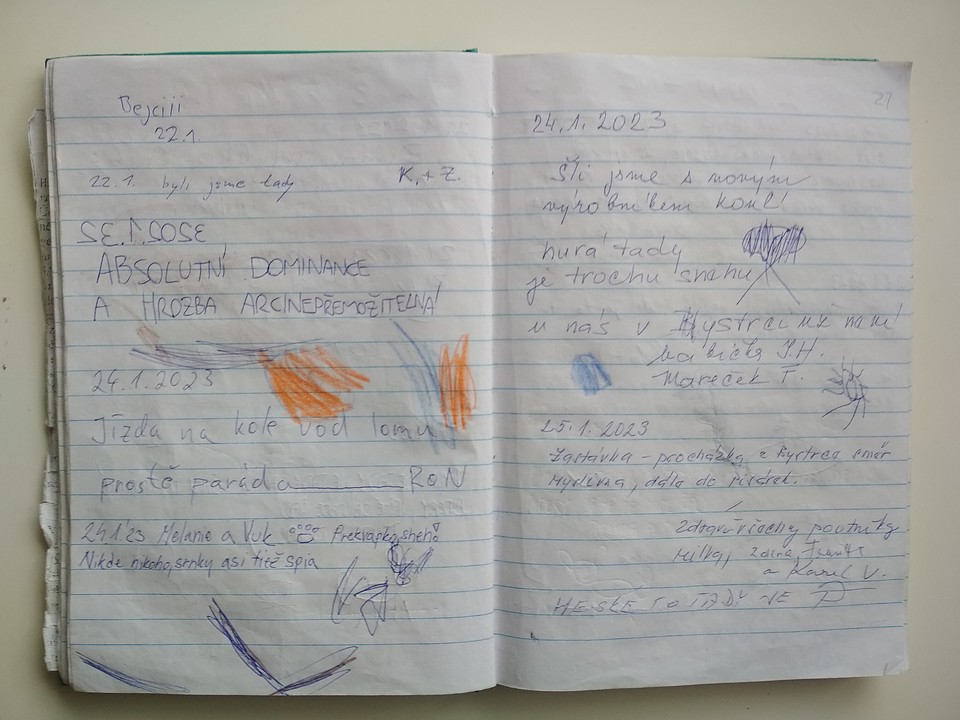 Bejciii
22.1.
22.1. byli jsme tady K. + Z.
ABSOLUTNÍ DOMINANCE
A HROZBA ARCINEPŘEMOŽITELNÁ!
24.1.2023
Jízda na kole vod lomu
prostě paráda RoN
24.1.23 Melanie a Vuk Prekvapko, sneh!
Nikde nikoho, srnky asi tiež spia
27
24.1.2023
Šli jsme s novým
výrobníkem koulí
hurá tady
je trochu sněhu
u nás v Bystrci nic není
babička J.H.
Mareček T.
25.1.2023
Zastávka - procházka z Bystrce směr
Myslivna, dále do Pisárek.
Zdraví všechny poutníky
Milka,
a Karel V.